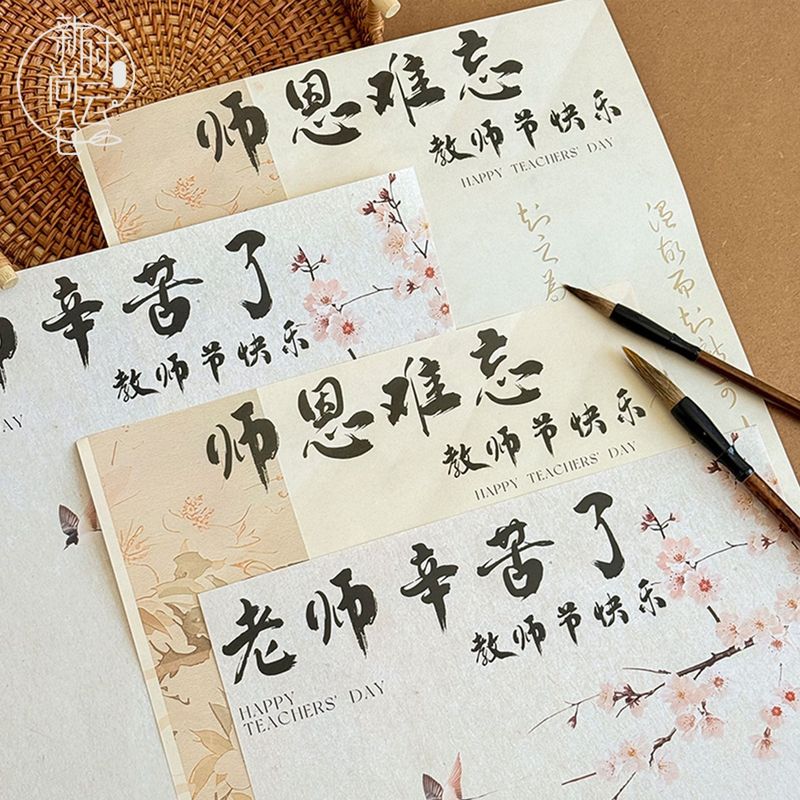 新时
尚云
师恩难忘
教师节快乐
HAPPY TEACHERS' DAY
温故而知新可
知之为
师辛苦了
教师节快乐
AY
师恩难忘
教师节快乐
HAPPY TEACHERS' DAY
老师辛苦了
教师节快乐
HAPPY
TEACHERS' DAY